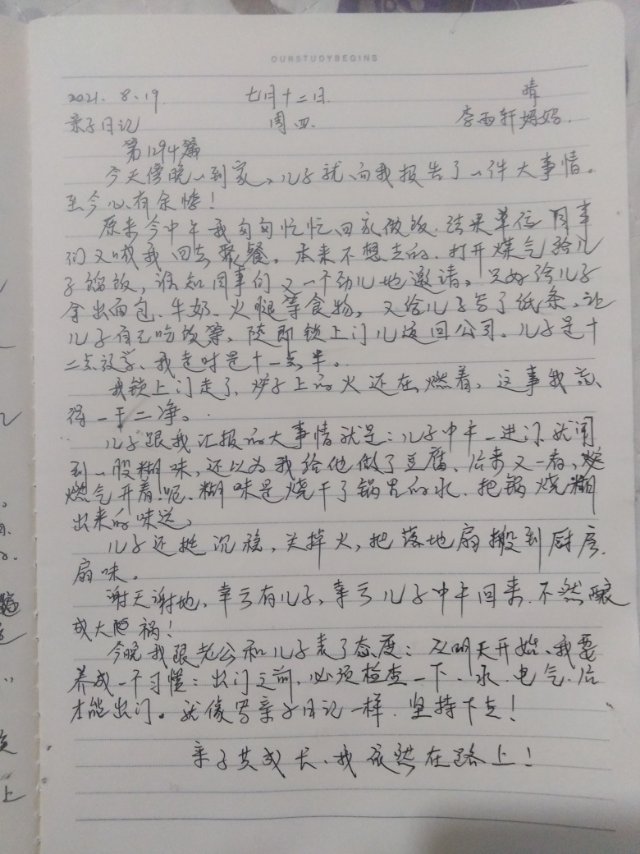 OURSTUDYBEGINS
2021. 8. 19. 七月十二日 晴
亲子日记 周四 李雨轩妈妈.
第1294篇
今天傍晚一到家,儿子就向我报告了一件大事情。
至今心有余悸!
原来今中午我匆匆忙忙回家做饭.结果单位同事
们又喊我回去聚餐。本来不想去的.打开煤气给儿
子馏饭,谁知同事们又一个劲儿地邀请。只好给儿子
拿出面包、牛奶、火腿等食物,又给儿子写了纸条,让
儿子自己吃饭等,随即锁上门儿返回公司。儿子是十
二点放学、我走时是十一点半。
我锁上门走了,炉子上的火还在燃着,这事我忘
得一干二净。
儿子跟我汇报的大事情就是:儿子中午一进门就闻
到一股糊味,还以为我给他做了豆腐、后来又一看,
燃气开着呢.糊味是烧干了锅里的水.把锅烧糊
出来的味道。
儿子还挺沉稳,关掉火,把落地扇搬到厨房,
扇味。
谢天谢地,幸亏有儿子,幸亏儿子中午回来.不然酿
成大隐祸!
今晚我跟老公和儿子表了态度:从明天开始、我要
养成一个习惯:出门之前,必须检查一下.水.电.气.后
才能出门。就像写亲子日记一样.坚持下去!
亲子共成长、我依然在路上!